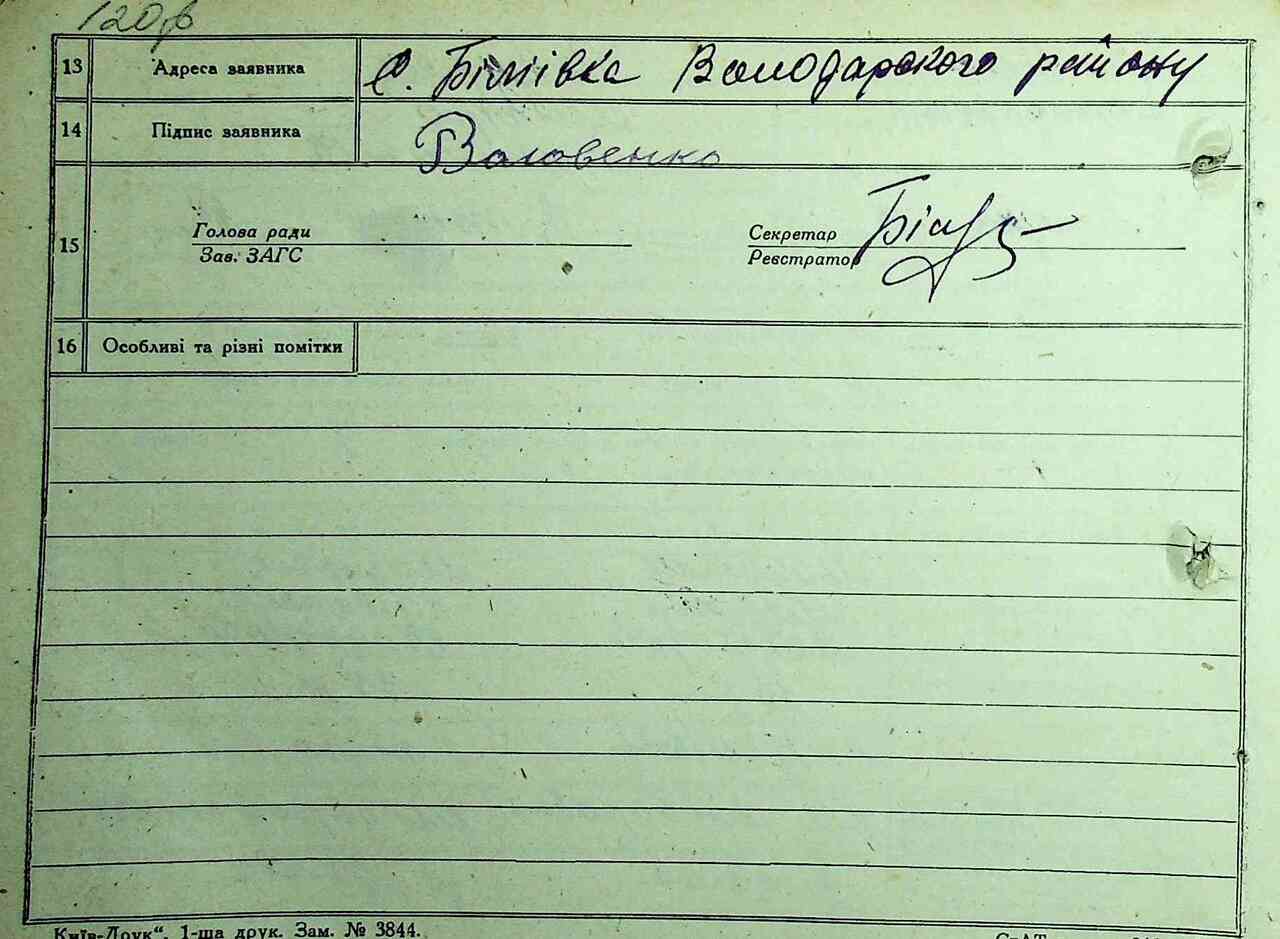 120
13 Адреса заявника с. Біліївка Володарского району
14 Підпис заявника Воловенко
15 Голова ради Секретар
Зав. ЗАГС Реєстратор
16 Особливі та різні помітки
Київ-Друк“, 1-ша друк. Зам. № 3844.